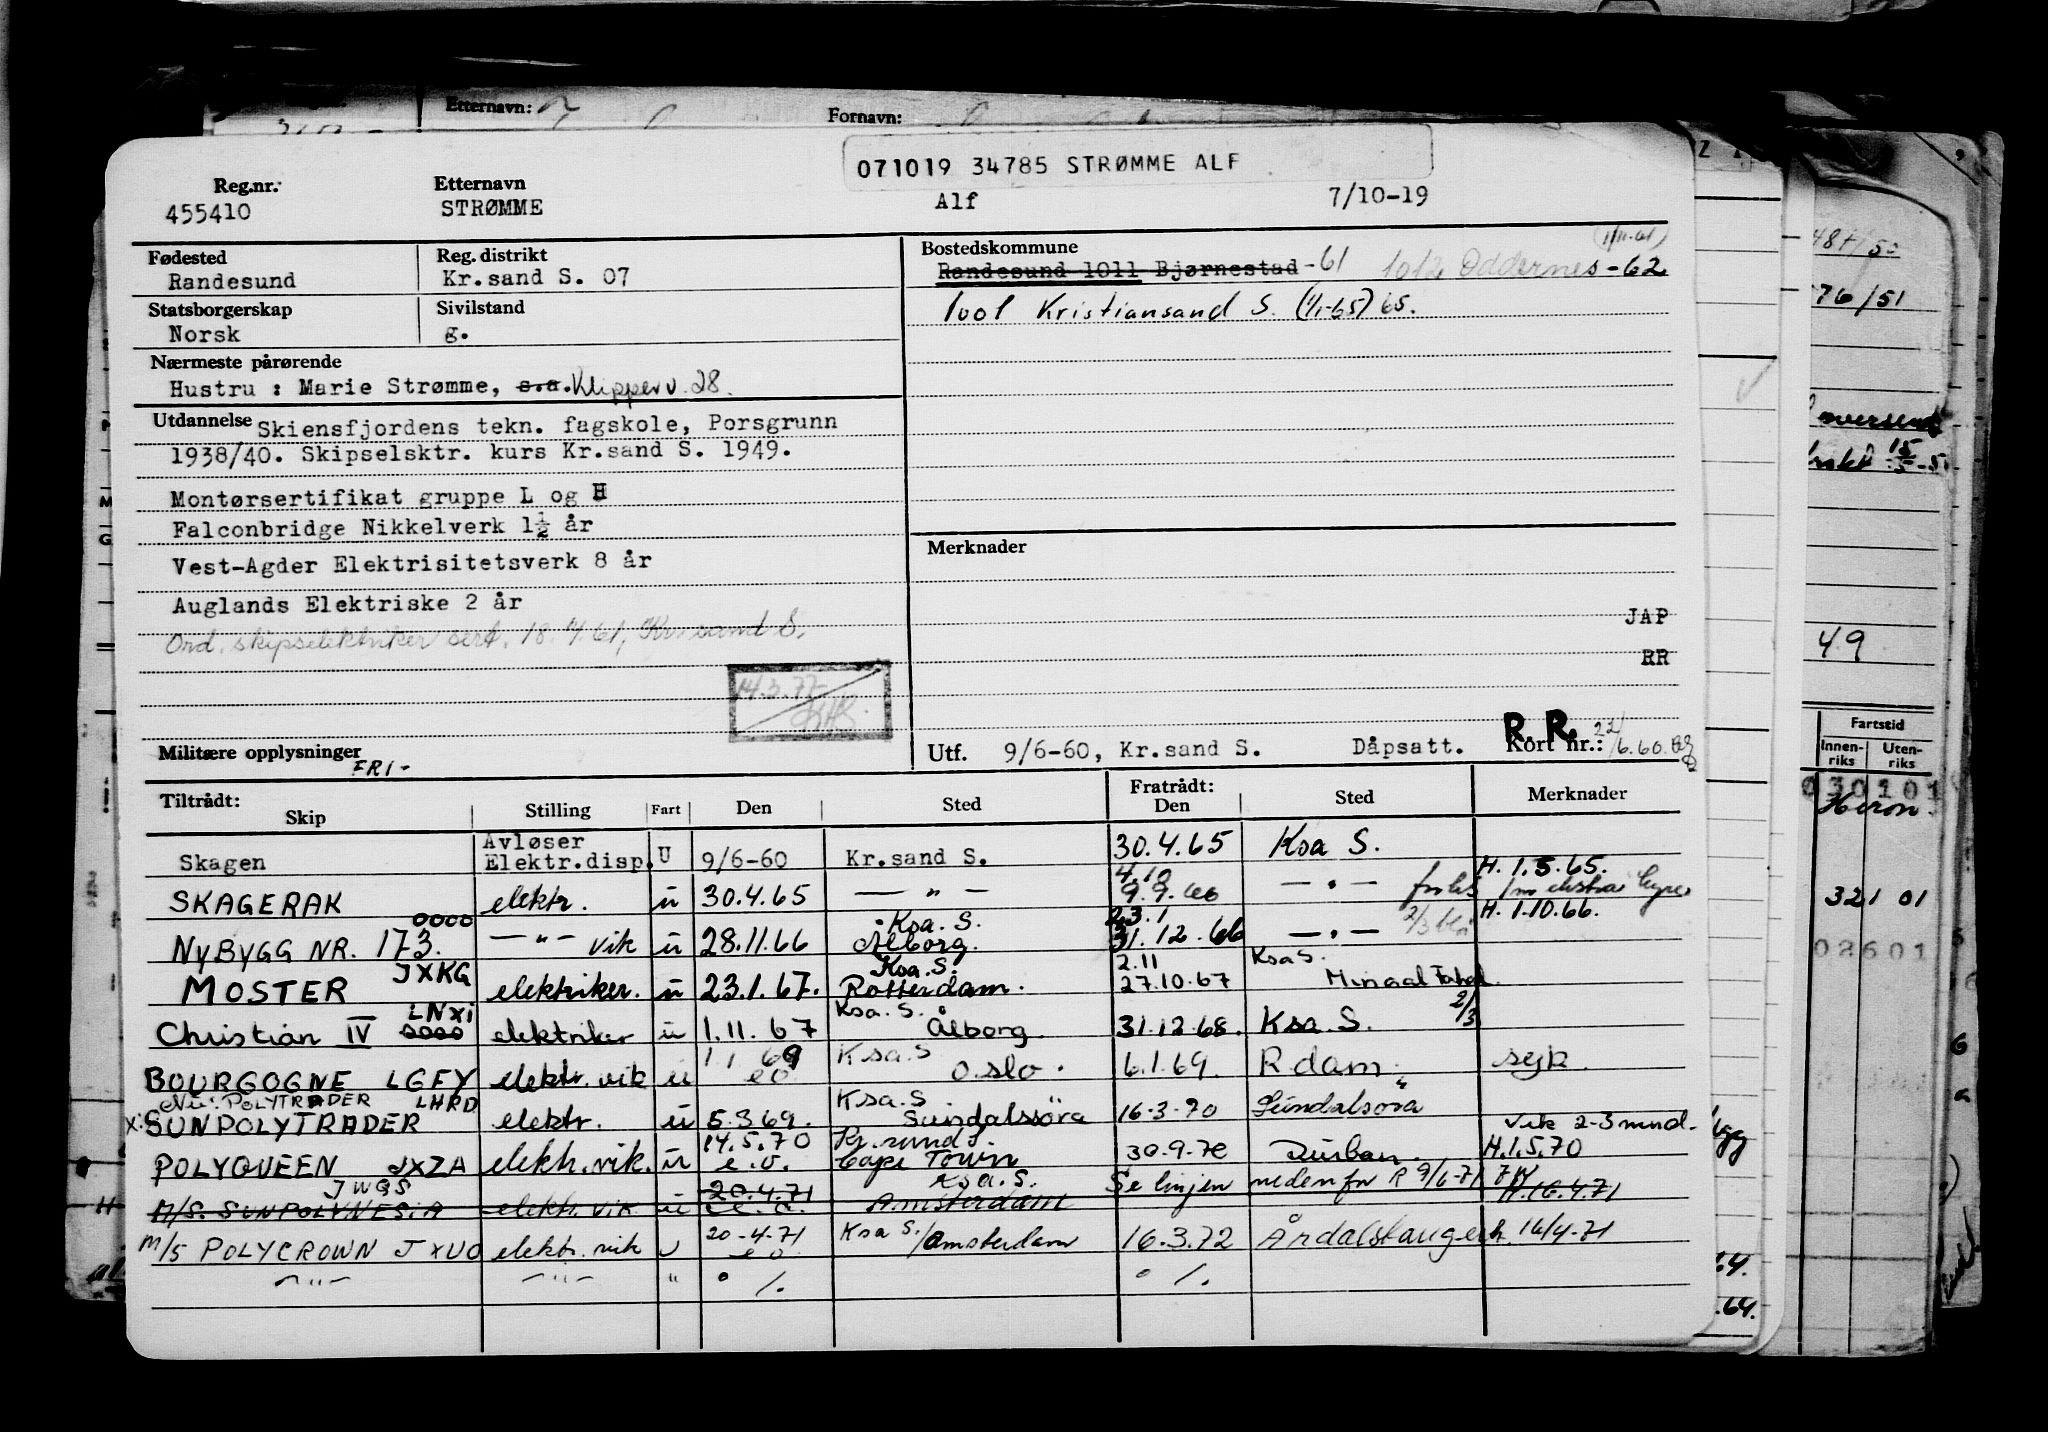 Etternavn:
Fornavn:
071019 34785 STRØMME ALF
Reg.nr. Etternavn
455410 STRØMME Alf 7/10-19
Fødested Reg. distrikt Bostedskommune
Randesund Kr.sand S. 07 Randesund 1011 Bjørnestad -61 1012 Oddernes -62
Statsborgerskap Sivilstand
Norsk g. 1001 Kristiansand S. (1/1-65) 65.
Nærmeste pårørende
Hustru : Marie Strømme, s.a. Klipperv. 28.
Utdannelse Skiensfjordens tekn. fagskole, Porsgrunn
1938/40. Skipselsktr. kurs Kr.sand S. 1949.
Montørsertifikat gruppe L og H
Falconbridge Nikkelverk 1½ år
Vest-Agder Elektrisitetsverk 8 år
Auglands Elektriske 2 år
Ord. skipselektriker sert. 18.4.61, Kr.sand S.
14.3.77
Merknader
JAP
RR
R. R.
Militære opplysninger
FRI-
Utf. 9/6-60, Kr.sand S. Dåpsatt. Kort nr.: 22/6.60.
Tiltrådt: Fratrådt:
Skip Stilling Fart Den Sted Den Sted Merknader
Skagen Avløser Elektr.disp. U 9/6-60 Kr.sand S. 30.4.65 Ksa S.
H. 1.5.65.
4.10
SKAGERAK elektr. u 30.4.65 — " — 9.9.66 — " —
0000 Ksa. S. 23.1 2/3 H. 1.10.66.
NYBYGG NR. 173. — " — vik u 28.11.66 Ålborg. 31.12.66 — " —
JXKG Ksa. S. 2.11 Ksa S.
MOSTER elektriker. u 23.1.67. Rotterdam. 27.10.67
LNXI Ksa. S. 2/3
Christian IV 0000 elektriker u 1.11.67 Ålborg 31.12.68. Ksa. S.
1.1 69 Ksa. S
BOURGOGNE LGFY elektr. vik u e.o. Oslo. 6.1.69. R.dam. syk
Nu: POLYTRADER LHRD Ksa. S
x SUNPOLYTRADER elektr. u 5.3.69. Sundalsöra 16-3-70 Sundalsöra
14.5.70 Kr. sund S. Vik 2-3 mnd.
POLYQUEEN JXZA elektr. vik. u e.o. Cape Town 30.9.70 Durban. H.1.5.70
JWGS 20.4.71 Ksa. S. Se linjen nedenfor R 9/6-71
M/S. SUNPOLYNESIA elektr. vik u e.o. Amsterdam H.16.4.71
M/S POLYCROWN JXUO elektr. vik u 20-4-71 e.o Ksa S./Amsterdam 16.3.72 Årdalstangen h. 16/4-71
— " — — " — " ° /. ° /.
76/51
49
Fartstid
Innen-riks Uten-riks
030101
Heron
321 01
02601
.64.